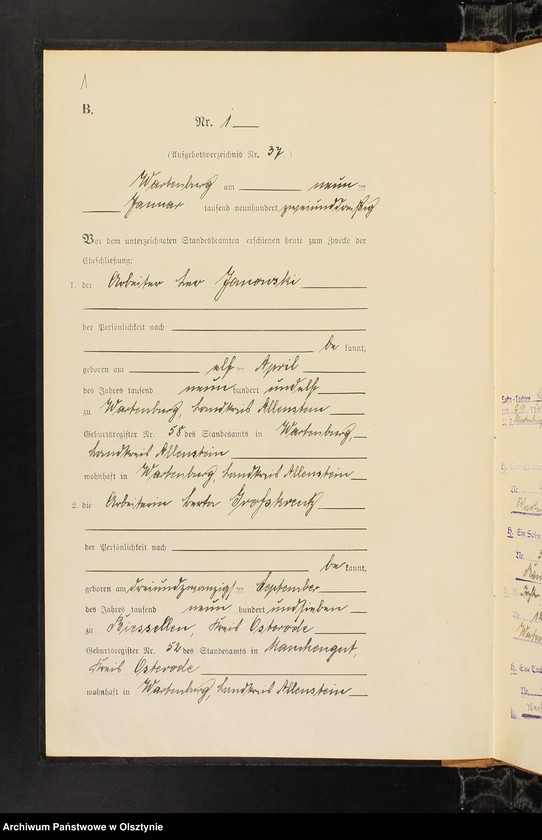 1
B.
Nr. 1
(Aufgebotsverzeichnis Nr. 37)
Wartenburg am neun ten
Januar tausend neunhundert zweiunddreißig
Vor dem unterzeichneten Standesbeamten erschienen heute zum Zwecke der
Eheschließung:
1. der Arbeiter Leo Janowski
der Persönlichkeit nach
be kannt,
geboren am elf ten April
des Jahres tausend neun hundert undelf
zu Wartenburg, Landkreis Allenstein
Geburtsregister Nr. 58 des Standesamts in Wartenburg,
Landkreis Allenstein
wohnhaft in Wartenburg, Landkreis Allenstein
2. die Arbeiterin Berta Großkreutz
der Persönlichkeit nach
be kannt,
geboren am dreiundzwanzigs ten September
des Jahres tausend neun hundert undsieben
zu Biessellen, Kreis Osterode
Geburtsregister Nr. 52 des Standesamts in Manchengut,
Kreis Osterode
wohnhaft in Wartenburg, Landkreis Allenstein
Archiwum Państwowe w Olsztynie